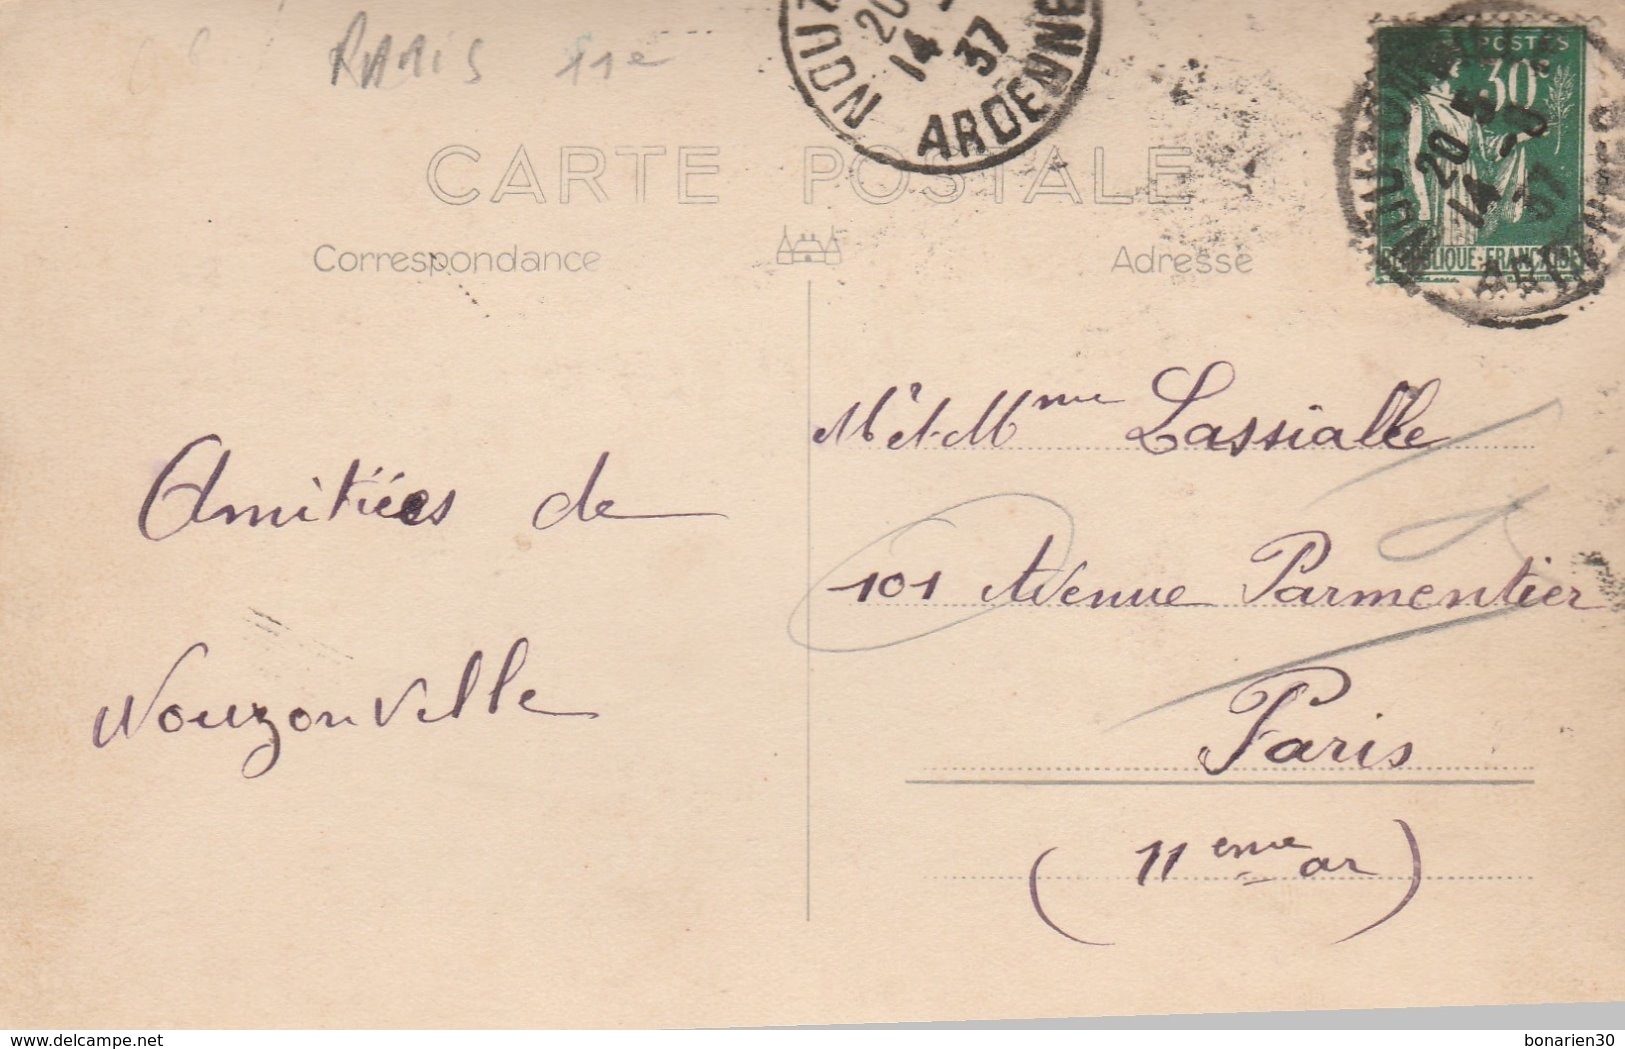 PARIS 11e
NOUZ
20
14
37
ARDENNE
POSTES
30c
20
14
37
RÉPUBLIQUE-FRANÇAISE
CARTE POSTALE
Correspondance
Adresse
Amitiées de
Nouzonville
Mr et Mme Lassialle
101 Avenue Parmentier
Paris
(11eme ar)
delcampe.net
bonarien30